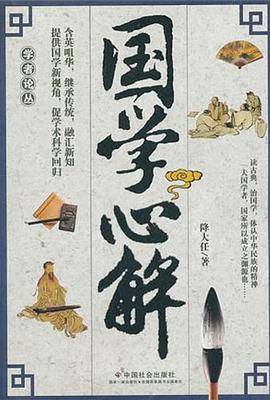 国学心解
学者论丛
含英咀华，继承传统，融汇新知
提供国学新视角，促学术科学回归
读古典，治国学，体认中华民族的精神
“夫国学者，国家所以成立之源泉也……
降大任/著
中国社会出版社